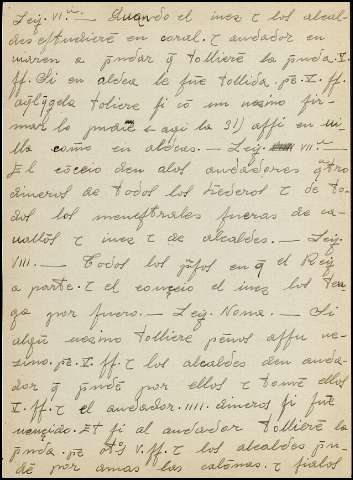 Ley. VIª.— Quando el iuez τ los alcal-
des estudieren en coral. τ andador en-
uiaren a pñdar q̃ tolliere la pñda. X.
ff. Si en aldea le fue tollida. pe. V. ff.
aq̃l q̃gela toliere si cõ un uesino fir-
mar lo pudie (aqi la 31) assi en ui-
lla como en aldeas. — Ley. VIIª.—
El cõceio den alos andadores q̃tro
dineros de todos los τ de to-
dos los menestrales fueras de ca-
uallos τ iuez τ de alcaldes. — Ley.
VIII.— Todos los p̃sos en q̃ el Rey
a parte. τ el conceio el iuez los ten-
ga por fuero. — Ley. Nona. — Si
algũ uesino tolliere peños assu ue-
zino. pe. X. ff. τ los alcaldes den anda-
dor q̃ pñde por ellos τ tome ellos
X. ff. τ el andador. IIII. dineros si fue
uençido. Et si al andador tolliere la
pñda. pe ot̃os V. ff. τ los alcaldes pñ-
dẽ por amas las calonas. τ fialos